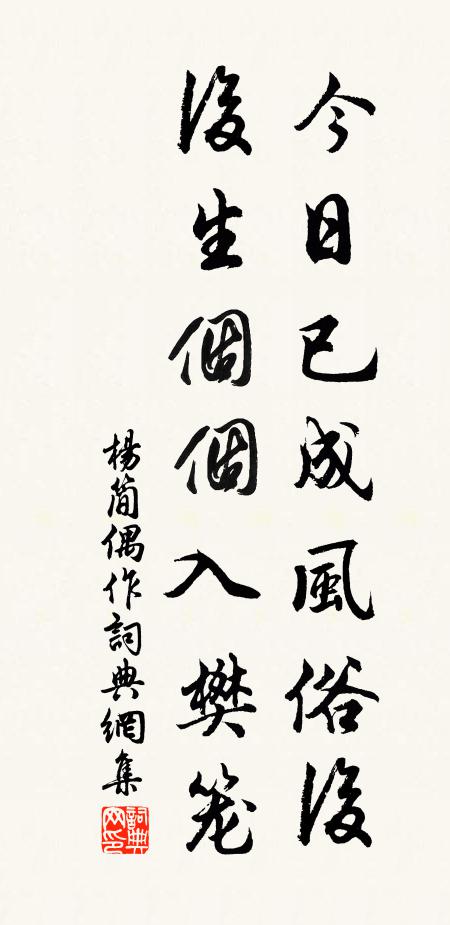 今日已成風俗後
後生個個入樊笼
楊簡偶作詞典網集
詞典网印